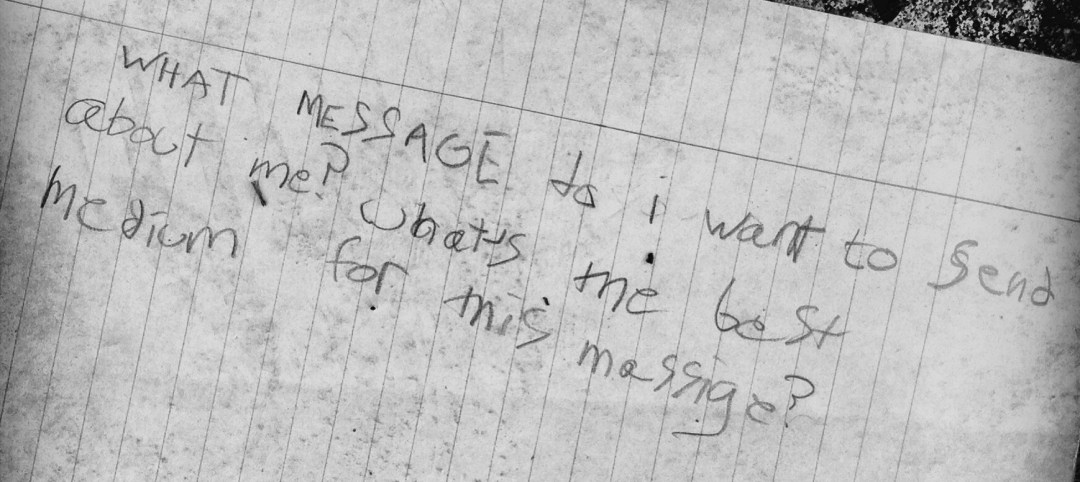 WHAT MESSAGE do i want to send
about me? what's the best
medium for this massige?